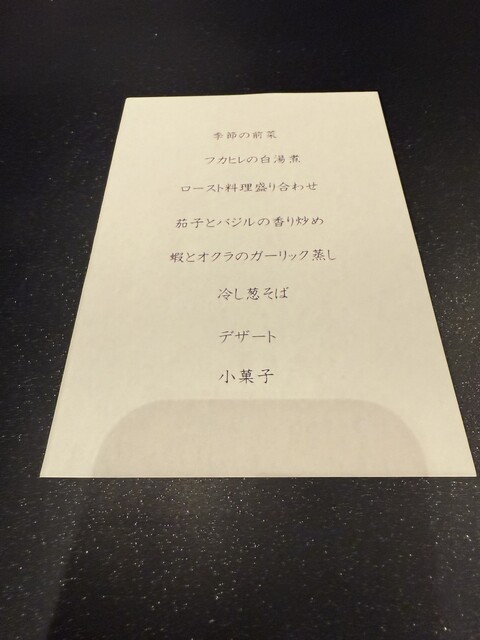 季節の前菜
フカヒレの白湯煮
ロースト料理盛り合わせ
茄子とバジルの香り炒め
蝦とオクラのガーリック蒸し
冷し葱そば
デザート
小菓子